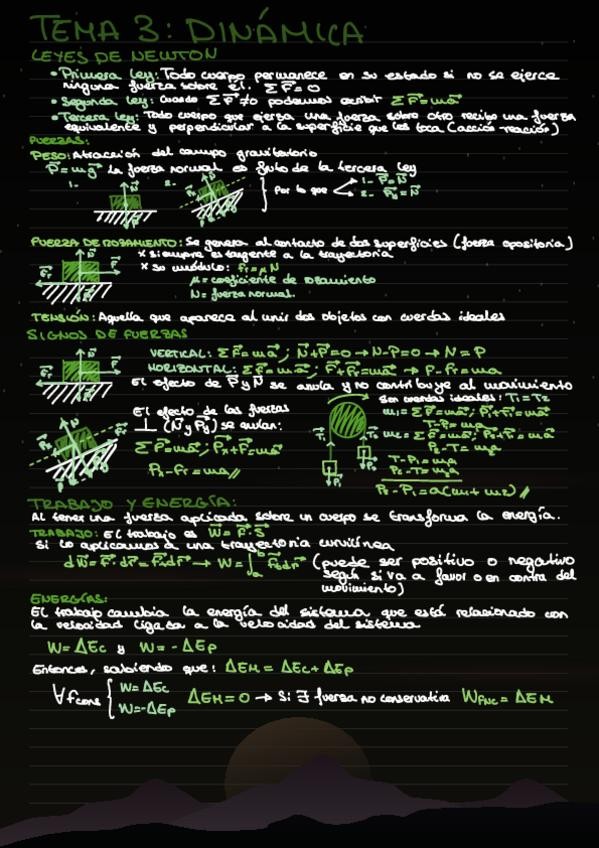 TEMA 3: DINÁMICA
LEYES DE NEWTON
• Primera ley: Todo cuerpo permanece en su estado si no se ejerce
ninguna fuerza sobre él. Σ F⃗ = 0
• Segunda ley: Cuando Σ F⃗ ≠ 0 podemos escribir Σ F⃗ = ma⃗
• Tercera ley: Todo cuerpo que ejerza una fuerza sobre otro recibe una fuerza
equivalente y perpendicular a la superficie que las toca (acción-reación)
FUERZAS:
PESO: Atracción del campo gravitatorio
P⃗ = mg⃗ La fuerza normal es fruto de la tercera ley
1- 2- Por lo que 1- P⃗ = N⃗
2- P⃗y = N⃗
FUERZA DE ROZAMIENTO: Se genera al contacto de dos superficies (fuerza opositoria)
x siempre es tangente a la trayectoria
x su módulo: Fr = μN
μ = coeficiente de rozamiento
N = fuerza normal.
TENSIÓN: Aquella que aparece al unir dos objetos con cuerdas ideales
SIGNOS DE FUERZAS
VERTICAL: Σ F⃗ = ma⃗; N⃗ + P⃗ = 0 → N - P = 0 → N = P
HORIZONTAL: Σ F⃗ = ma⃗; F⃗ + Fr⃗ = ma⃗ → F - Fr = ma
El efecto de P⃗ y N⃗ se anula y no contribuye al movimiento
son cuerdas ideales: T1 = T2
El efecto de las fuerzas
⊥ (N⃗ y P⃗y) se anulan:
Σ F⃗ = ma⃗; P⃗x + F⃗r = ma⃗
Px - Fr = ma//
m1 = Σ F⃗ = ma⃗; P⃗1 + T⃗1 = ma⃗
T - P1 = m1a
m2 = Σ F⃗ = ma⃗; P⃗2 + T⃗2 = ma⃗
P2 - T = m2a
T - P1 = m1a
P2 - T = m2a
P2 - P1 = a(m1 + m2)//
TRABAJO Y ENERGÍA:
Al tener una fuerza aplicada sobre un cuerpo se transforma la energía.
TRABAJO: El trabajo es W⃗ = F⃗ · S⃗
Si lo aplicamos a una trayectoria curvilínea
dW⃗ = F⃗ · dr⃗ = Ftdr⃗ → W = ∫ Ftdr⃗ (puede ser positivo o negativo
según si va a favor o en contra del
movimiento)
ENERGÍAS:
El trabajo cambia la energía del sistema que está relacionado con
la velocidad ligada a la velocidad del sistema
W = ΔEc y W = -ΔEp
Entonces, sabiendo que: ΔEM = ΔEc + ΔEp
∀ fcons { W = ΔEc
W = -ΔEp
ΔEM = 0 → Si ∃ fuerza no conservativa WFNC = ΔEM